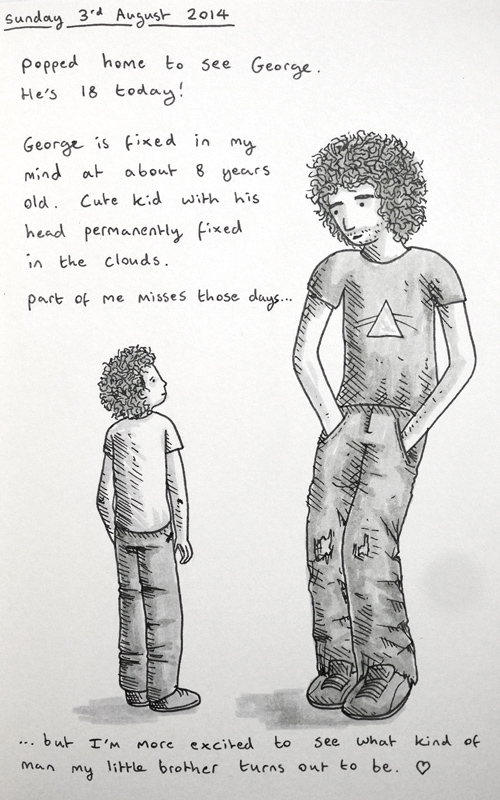 Sunday 3rd August 2014
Popped home to see George.
He's 18 today!
George is fixed in my
mind at about 8 years
old. Cute kid with his
head permanently fixed
in the clouds.
part of me misses those days...
... but I'm more excited to see what kind of
man my little brother turns out to be. ♡